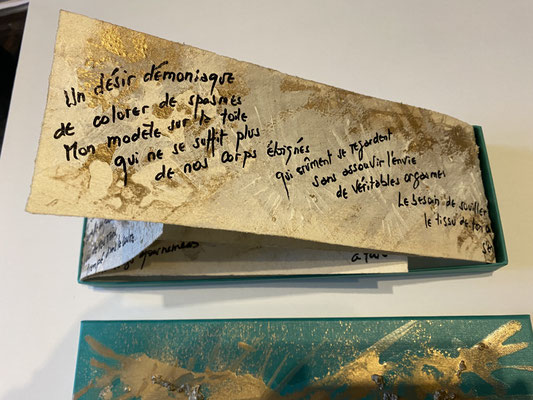 Un désir démoniaque
de colorer de spasmes
Mon modèle sur la toile
qui ne se suffit plus
de nos corps éloignés
qui crûment se regardent
sans assouvir l'envie
de véritables orgasmes
Le besoin de souiller
le tissu de ton